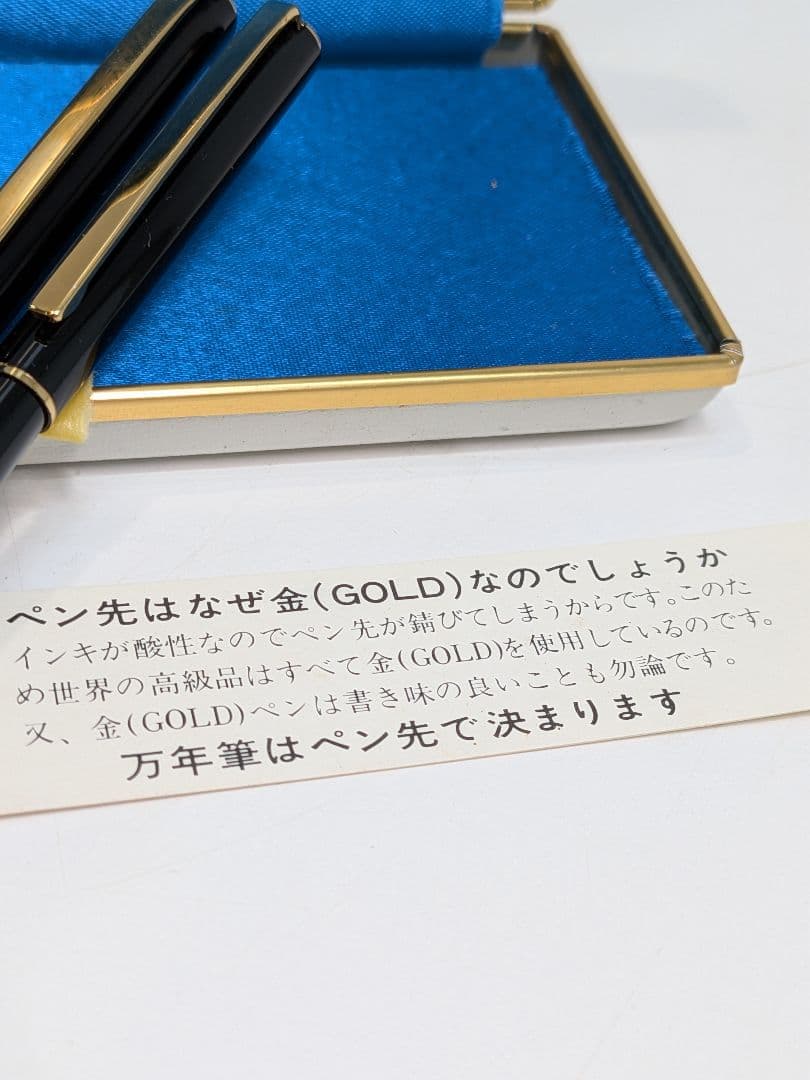 ペン先はなぜ金(GOLD)なのでしょうか
インキが酸性なのでペン先が錆びてしまうからです。このた
め世界の高級品はすべて金(GOLD)を使用しているのです。
又、金(GOLD)ペンは書き味の良いことも勿論です。
万年筆はペン先で決まります